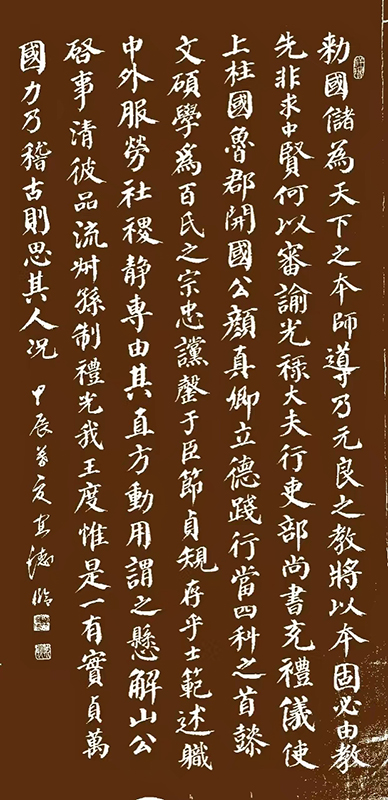 勅國儲為天下之本師導乃元良之教將以本固必由教
先非求中賢何以審諭光祿大夫行吏部尚書充禮儀使
上柱國魯郡開國公顏真卿立德踐行當四科之首懿
文碩學為百氏之宗忠讜罄于臣節貞規存乎士範述職
中外服勞社稷静專由其直方動用謂之懸解山公
啓事清彼品流叔孫制禮光我王度惟是一有實貞萬
國力乃稽古則思其人況
甲辰夏臨